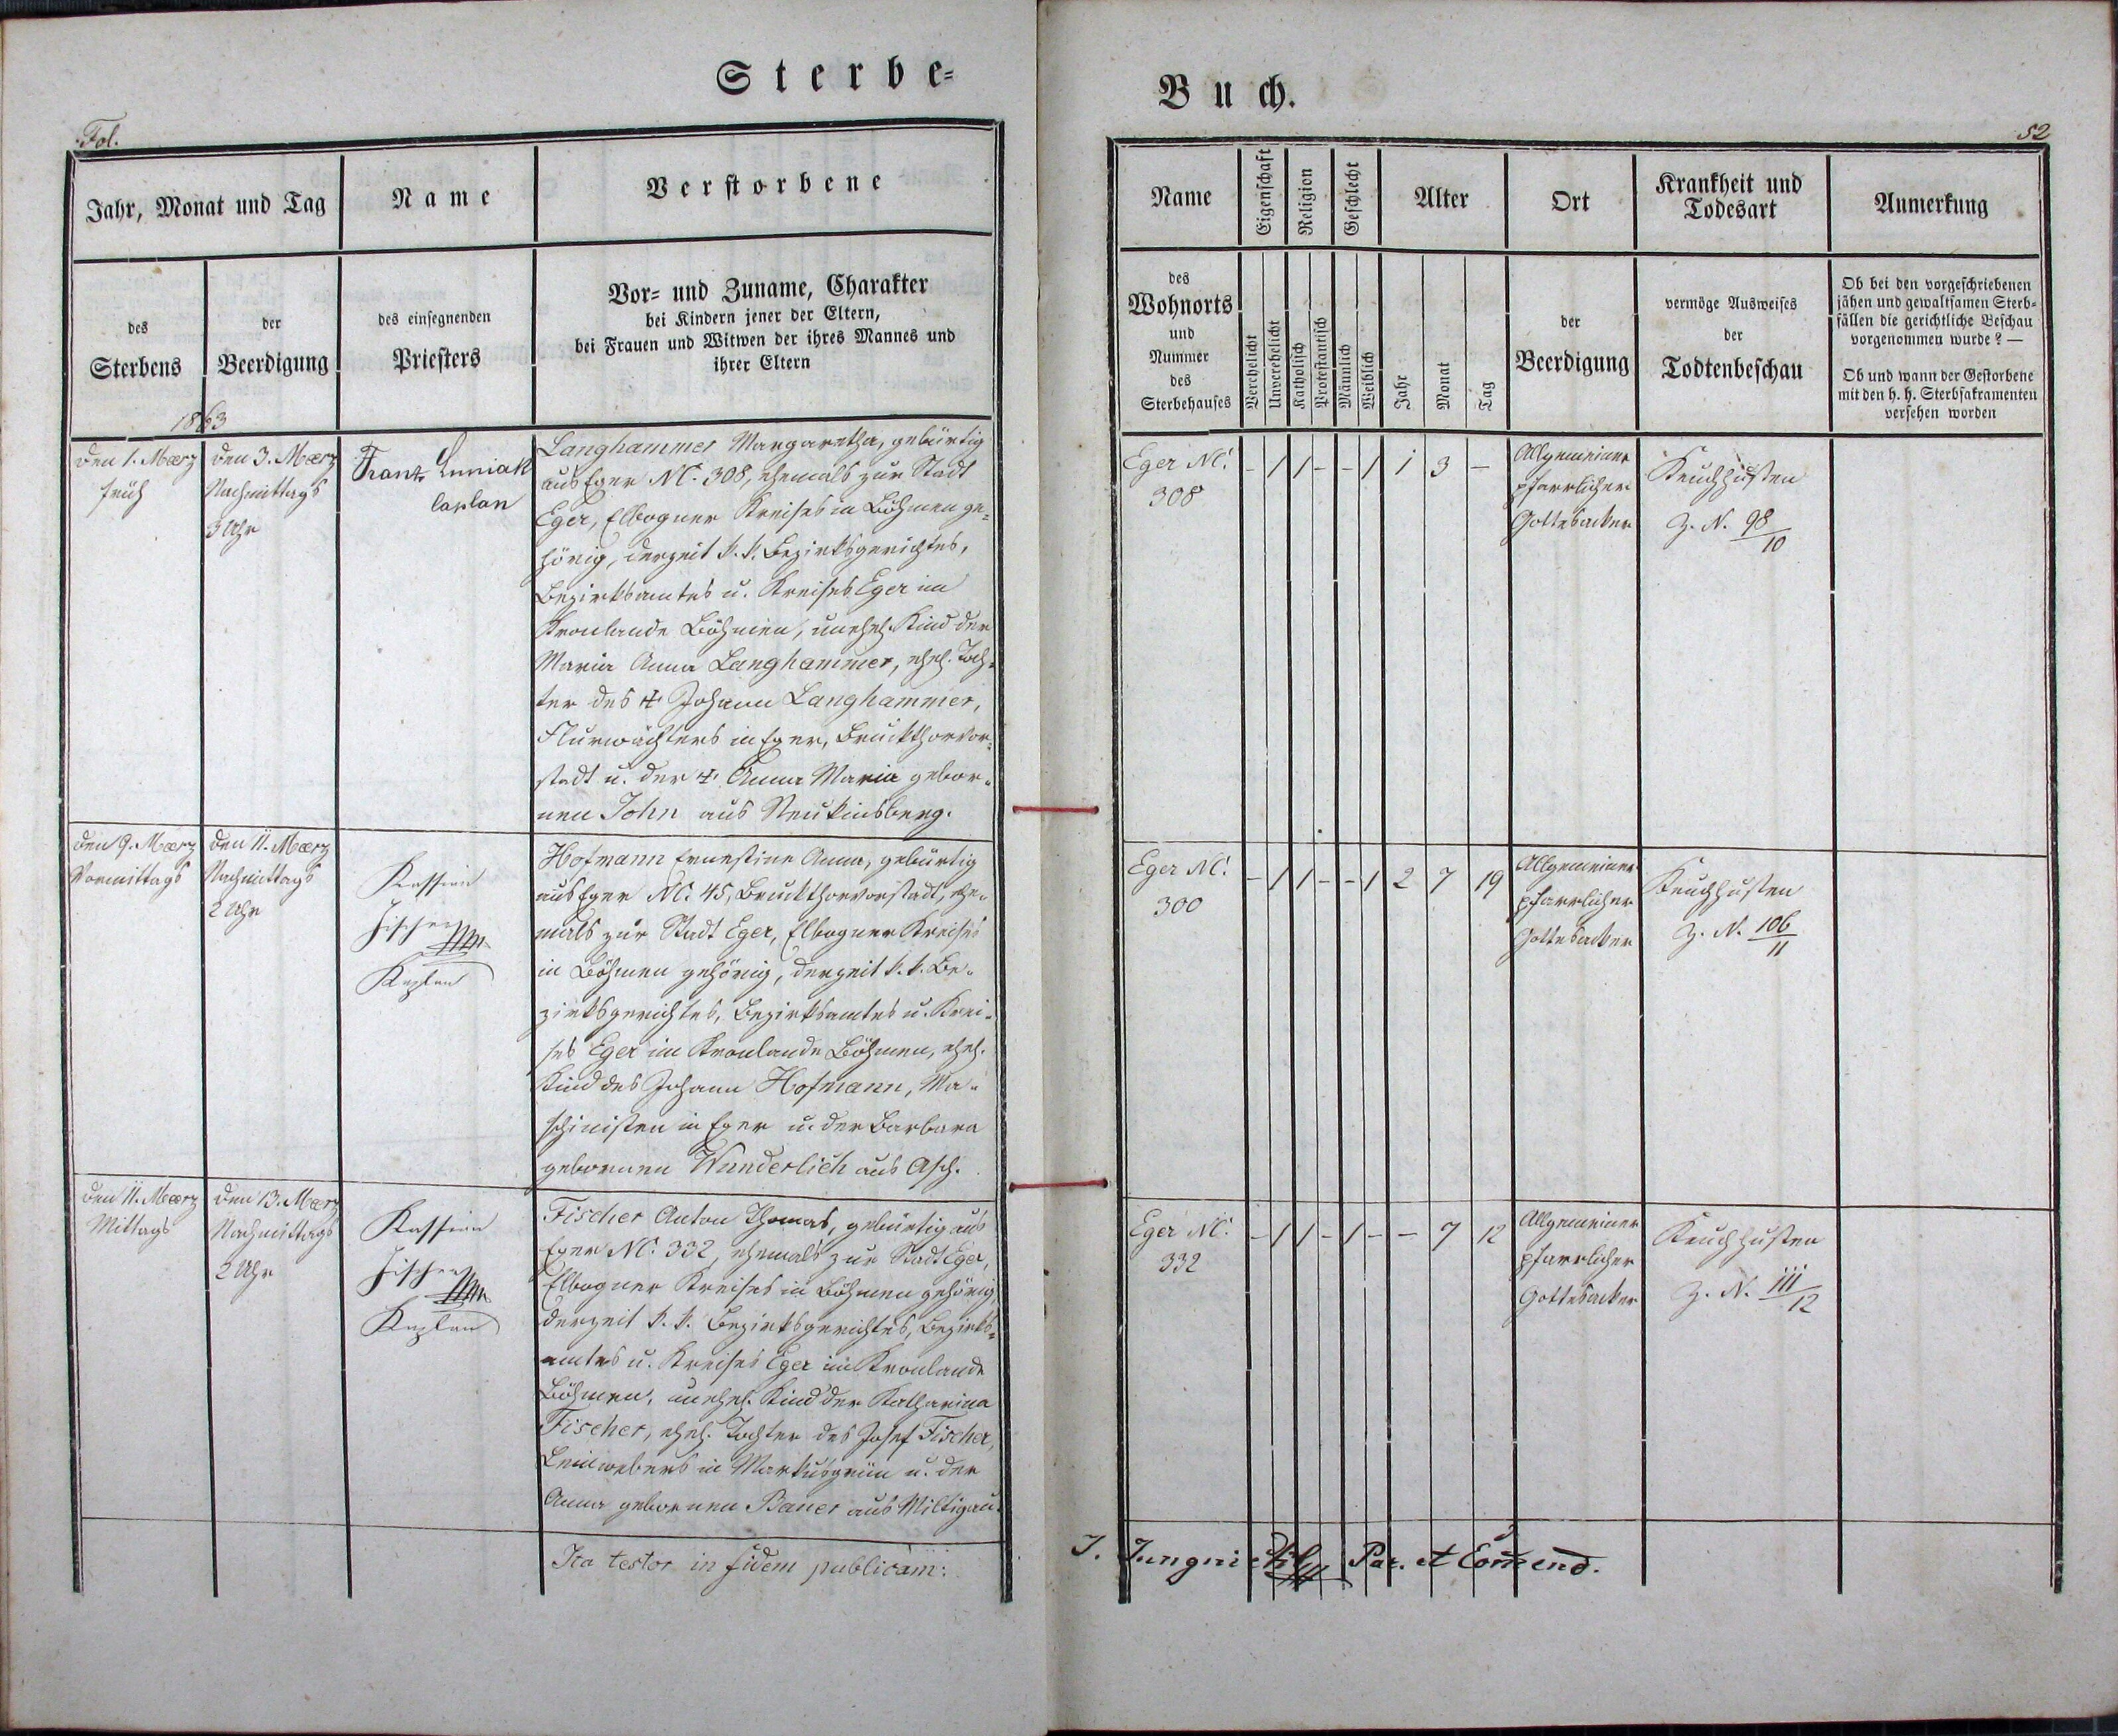 Sterbe-
Fol.
Jahr, Monat und Tag
Name
Verstorbene
des
Sterbens
der
Beerdigung
des einsegnenden
Priesters
Vor- und Zuname, Charakter
bei Kindern jener der Eltern,
bei Frauen und Witwen der ihres Mannes und
ihrer Eltern
1863
den 1. Maerz
früh
den 3. Maerz
Nachmittags
3 Uhr
Franz
Caplan
Langhammer Margaretha, gebürtig
aus Eger NC. 308, ehemals zur Stadt
Eger, Elbogner Kreises in Böhmen ge-
hörig, derzeit k. k. Bezirksgerichtes,
Bezirksamtes u. Kreises Eger im
Kronlande Böhmen, unehel. Kind der
Maria Anna Langhammer, ehel. Toch-
ter des † Johann Langhammer,
Flurwächters in Eger, Bruckthorvor-
stadt u. der † Anna Maria gebor-
nen John aus Neukinsberg.
den 9. Maerz
Vormittags
den 11. Maerz
Nachmittags
2 Uhr
Kassian
Fischer
Kaplan
Hofmann Ernestine Anna, gebürtig
aus Eger NC. 45, Bruckthorvorstadt, ehe-
mals zur Stadt Eger, Elbogner Kreises
in Böhmen gehörig, derzeit k. k. Be-
zirksgerichtes, Bezirksamtes u. Krei-
ses Eger im Kronlande Böhmen, ehel.
Kind des Johann Hofmann, Ma-
schinisten in Eger u. der Barbara
gebornen Wunderlich aus Asch.
den 11. Maerz
Mittags
den 13. Maerz
Nachmittags
2 Uhr
Kassian
Fischer
Kaplan
Fischer Anton Thomas, gebürtig aus
Eger NC. 332, ehemals zur Stadt Eger,
Elbogner Kreises in Böhmen gehörig,
derzeit k. k. Bezirksgerichtes, Bezirks-
amtes u. Kreises Eger im Kronlande
Böhmen, unehel. Kind der Katharina
Fischer, ehel. Tochter des Josef Fischer,
Leinwebers in Markusgrün u. der
Anna gebornen Bauer aus Miltigau.
Ita testor in fidem publicam:
Buch.
52
Name
Eigenschaft
Religion
Geschlecht
Alter
Ort
Krankheit und
Todesart
Anmerkung
des
Wohnorts
und
Nummer
des
Sterbehauses
Verehelicht
Unverehelicht
Katholisch
Protestantisch
Männlich
Weiblich
Jahr
Monat
Tag
der
Beerdigung
vermöge Ausweises
der
Todtenbeschau
Ob bei den vorgeschriebenen
jähen und gewaltsamen Sterb-
fällen die gerichtliche Beschau
vorgenommen wurde? —
Ob und wann der Gestorbene
mit den h. h. Sterbsakramenten
versehen worden
Eger NC.
308
- / / - - / 1 3 —
Allgemeiner
pfarrlicher
Gottesacker
Keuchhusten
Z. N. 98/10
Eger NC.
300
- / / - - / 2 7 19
Allgemeiner
pfarrlicher
Gottesacker
Keuchhusten
Z. N. 106/11
Eger NC.
332
- / / - / - - 7 12
Allgemeiner
pfarrlicher
Gottesacker
Keuchhusten
Z. N. 111/12
J. Par. et Comend.